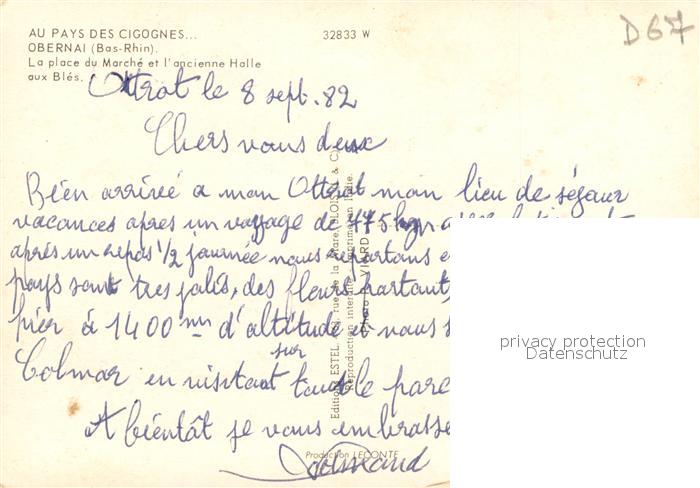 AU PAYS DES CIGOGNES...
OBERNAI (Bas-Rhin).
La place du Marché et l'ancienne Halle
aux Blés.
32833 W
D67
Ottrot le 8 sept. 82
Chers vous deux
Bien arrivé a mon Ottrot mon lieu de séjour
vacances apres un voyage de 775 km
après un repas 1/2 journée nous repartons
pays sont tres jolis, des fleurs partout,
hier à 1400 m d'altitude et nous
Colmar en visitant sur le parc
A bientôt je vous embrasse
Production LECONTE
privacy protection
Datenschutz